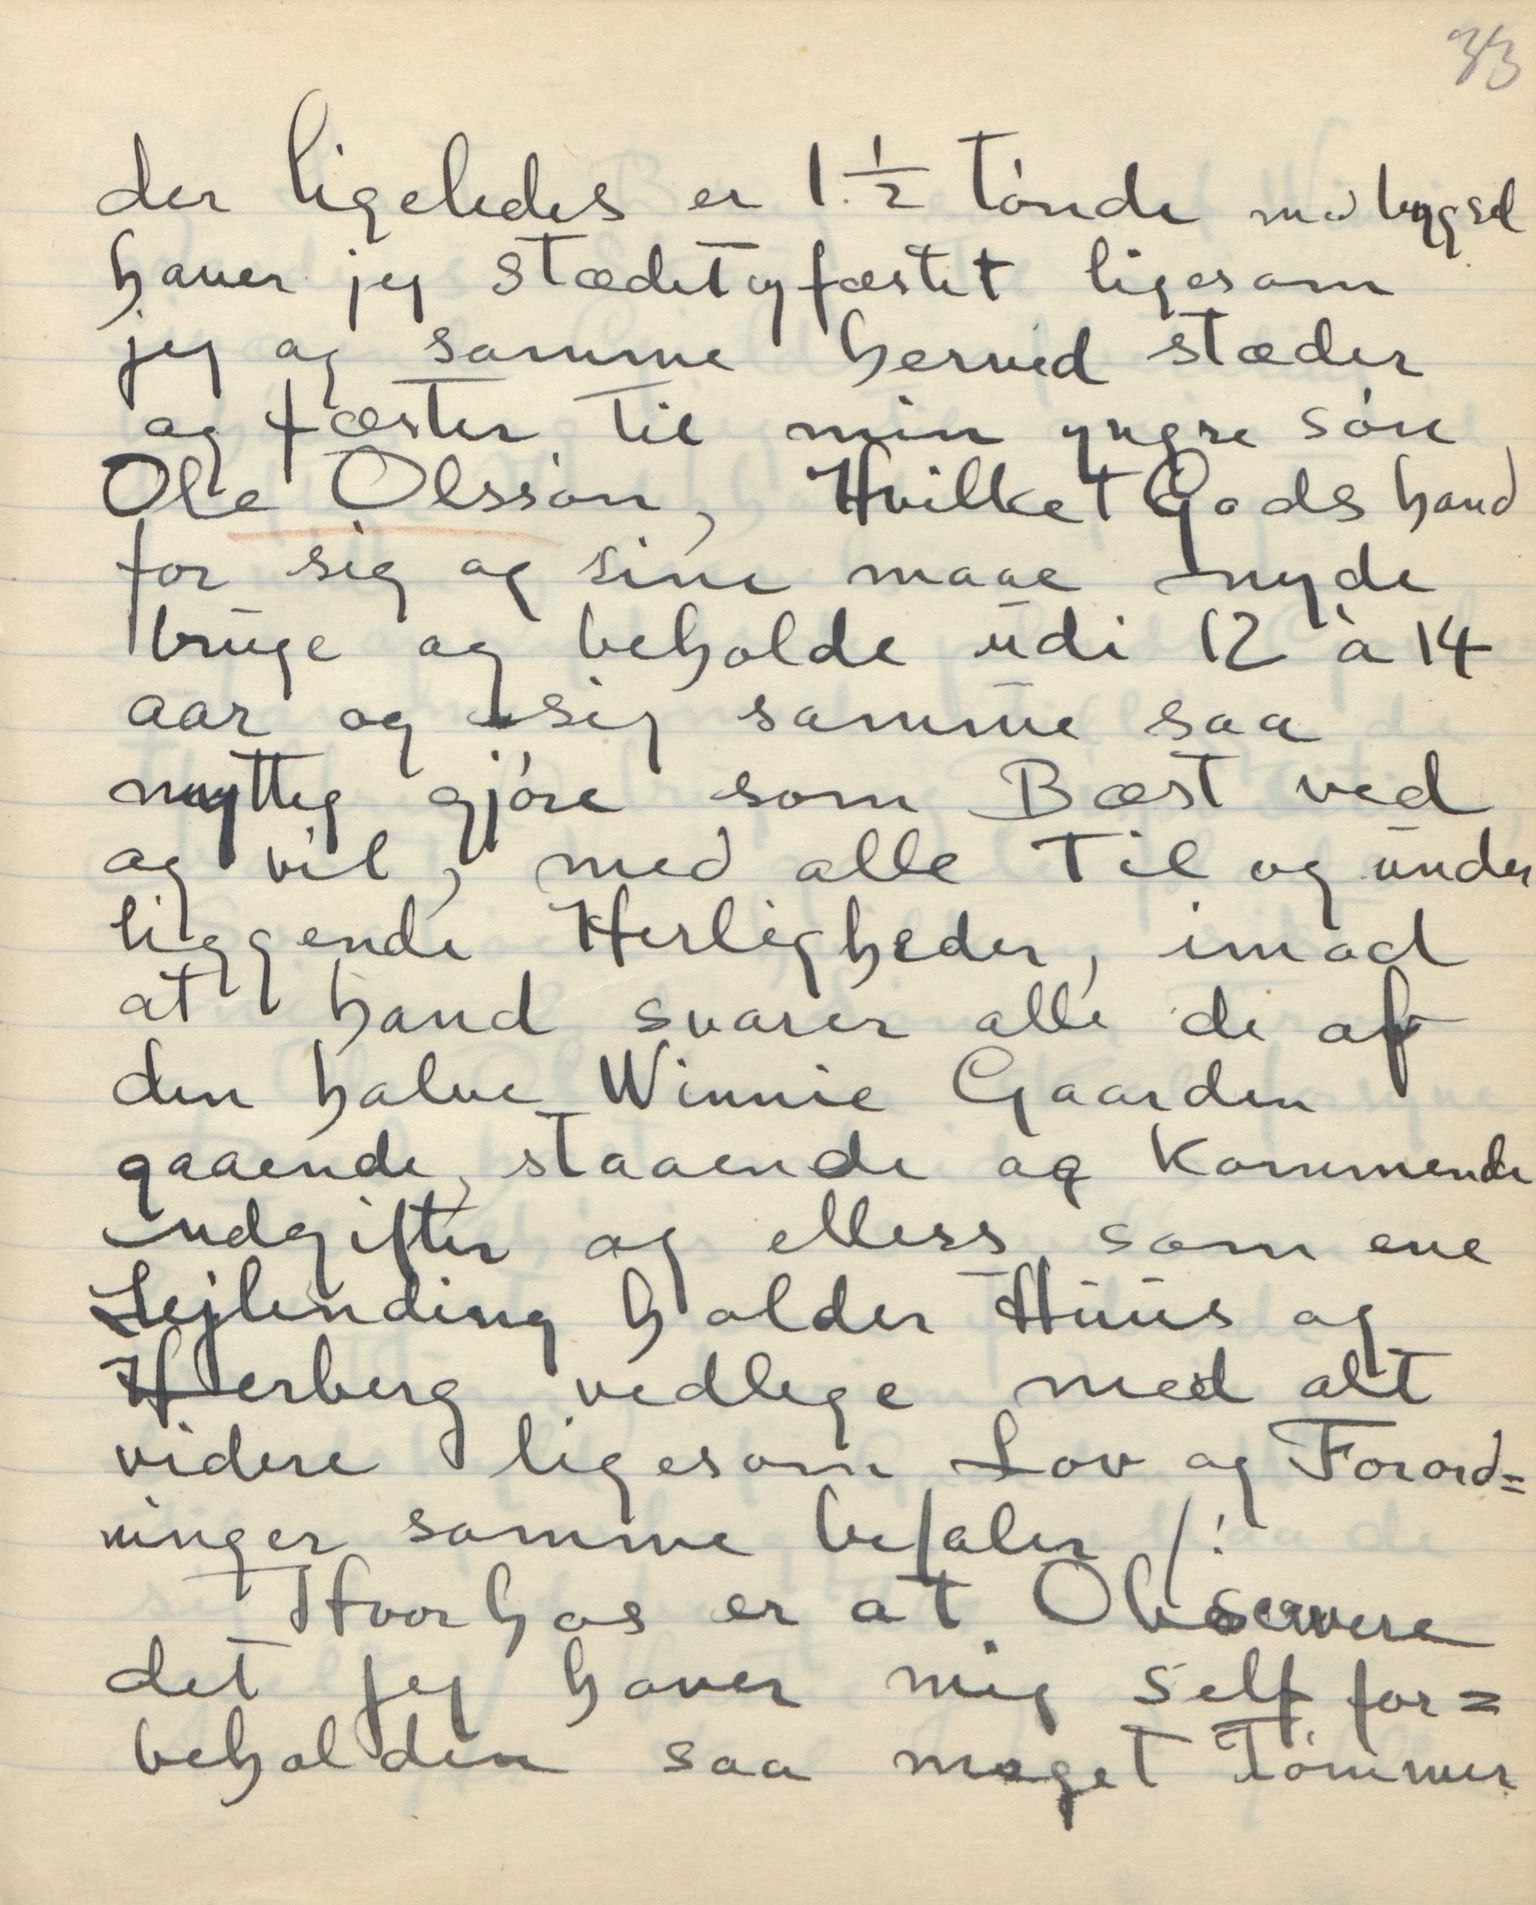 33
der ligeledes er 1 1/2 Tónde med bygsel
haver jeg stædet og fæstet ligesom
jeg og samme herved stæder
og fæster til min yngre són
Ole Olssøn, Hvilket Gods hand
for sig og sine maae nyde
bruge og beholde udi 12 à 14
aar og sig samme saa
nyttig gjóre som Bæst ved
og vil, med alle Til og under
liggende Herligheder, imod
at hand svarer alle de af
den halve Winnie Gaarden
gaaende, staaende og kommende
udgifter og elless som ene
Lejlending holder Huus og
Herberg vedlige med alt
videre ligesom Lov og Forord=
ninger samme befaler /:
Hvorhos er at Observere
det jeg haver mig self for=
beholden saa moget Tómmer